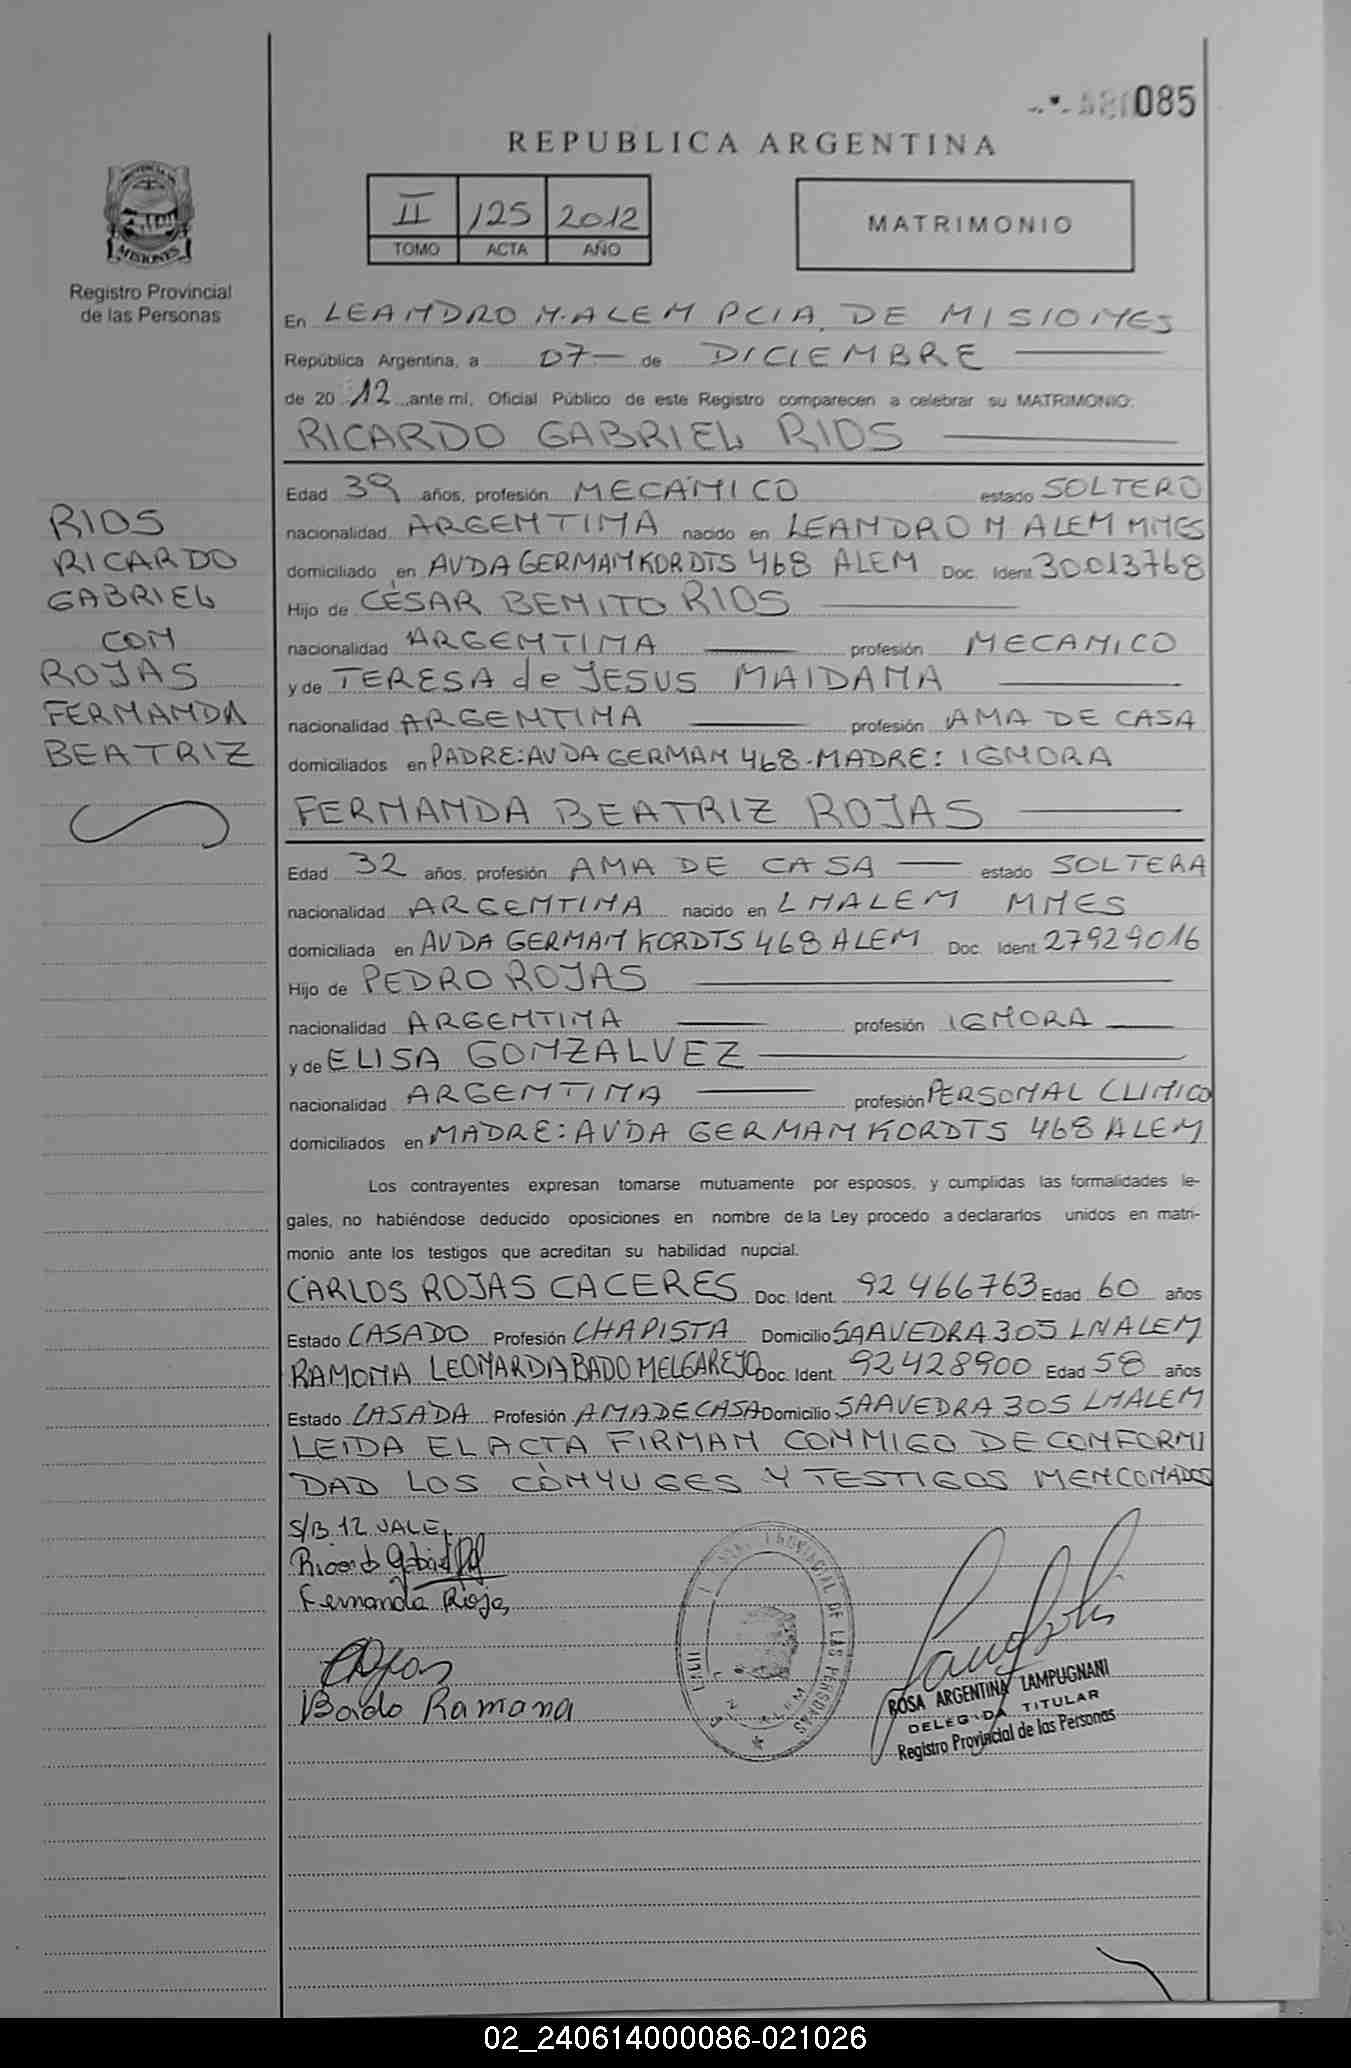 085
REPUBLICA ARGENTINA
II 125 2012
TOMO ACTA AÑO
MATRIMONIO
MISIONES
Registro Provincial
de las Personas
En LEANDRO N. ALEM PCIA. DE MISIONES
República Argentina, a 07 — de DICIEMBRE
de 20 12 ante mí, Oficial Público de este Registro comparecen a celebrar su MATRIMONIO:
RICARDO GABRIEL RIOS
Edad 39 años, profesión MECANICO estado SOLTERO
nacionalidad ARGENTINA nacido en LEANDRO N ALEM MNES
domiciliado en AVDA GERMAN KORDTS 468 ALEM Doc. Ident 30013768
Hijo de CÉSAR BENITO RIOS
nacionalidad ARGENTINA profesión MECANICO
y de TERESA de JESUS MAIDANA
nacionalidad ARGENTINA profesión AMA DE CASA
domiciliados en PADRE: AVDA GERMAN 468. MADRE: IGNORA
RIOS
RICARDO
GABRIEL
CON
ROJAS
FERNANDA
BEATRIZ
FERNANDA BEATRIZ ROJAS
Edad 32 años, profesión AMA DE CASA — estado SOLTERA
nacionalidad ARGENTINA nacido en L N ALEM MNES
domiciliada en AVDA GERMAN KORDTS 468 ALEM Doc. Ident. 27929016
Hijo de PEDRO ROJAS
nacionalidad ARGENTINA profesión IGNORA
y de ELISA GONZALVEZ
nacionalidad ARGENTINA profesión PERSONAL CLINICO
domiciliados en MADRE: AVDA GERMAN KORDTS 468 ALEM
Los contrayentes expresan tomarse mutuamente por esposos, y cumplidas las formalidades le-
gales, no habiéndose deducido oposiciones en nombre de la Ley procedo a declararlos unidos en matri-
monio ante los testigos que acreditan su habilidad nupcial.
CARLOS ROJAS CACERES Doc. Ident. 92 466763 Edad 60 años
Estado CASADO Profesión CHAPISTA Domicilio SAAVEDRA 305 LNALEM
RAMONA LEONARDA BADO MELGAREJO Doc. Ident. 92428900 Edad 58 años
Estado CASADA Profesión AMA DE CASA Domicilio SAAVEDRA 305 LNALEM
LEIDA EL ACTA FIRMAN CONMIGO DE CONFORMI
DAD LOS CÒNYUGES Y TESTIGOS MENCONADOS
S/B 12 VALE.
Ricardo Gabriel
Fernanda Rojas
Bado Ramona
PROVINCIAL DE LAS PERSONAS
ROSA ARGENTINA ZAMPUGNANI
DELEGADA TITULAR
Registro Provincial de las Personas
02_240614000086-021026